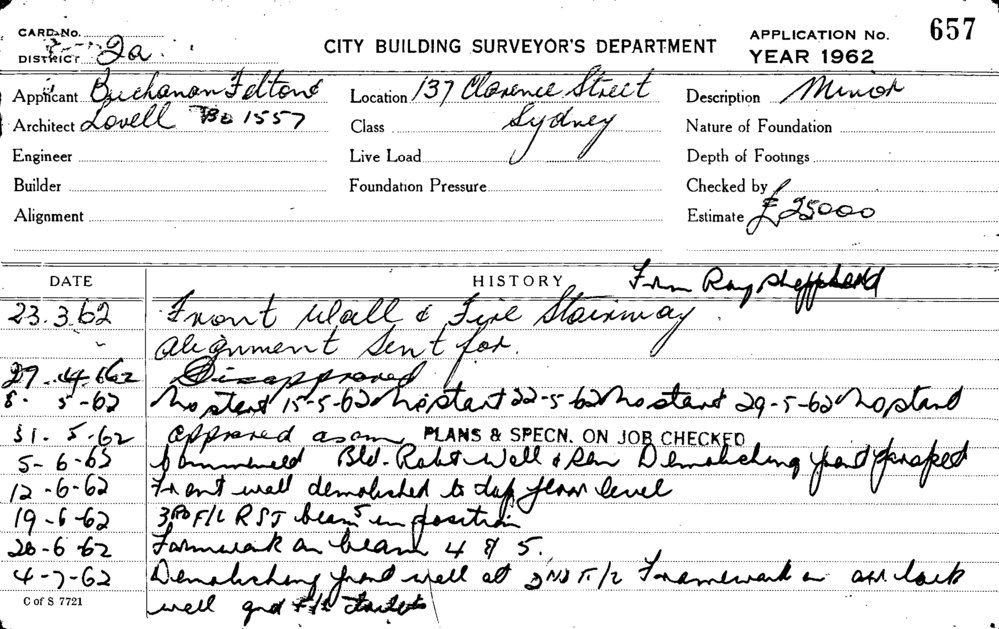 CARD No.
DISTRICT 2a
CITY BUILDING SURVEYOR'S DEPARTMENT
APPLICATION No. 657
YEAR 1962
Applicant Buchanan Felton &
Architect Lovell BO 1557
Engineer
Builder
Alignment
Location 137 Clarence Street
Class Sydney
Live Load
Foundation Pressure
Description Minor
Nature of Foundation
Depth of Footings
Checked by
Estimate £25000
DATE HISTORY From Ray Shepphard
23.3.62 Front Wall & Fire Stairway
Alignment Sent for.
27.4.62 Disapproved
8.5-62 No start 15-5-62 No start 22-5-62 No start 29-5-62 No start
31.5.62 Approved as am PLANS & SPECN. ON JOB CHECKED
5-6-62 Commenced Bld. Robt Wall & Son Demolishing front parapet
12-6-62 Front wall demolished to top floor level
19-6-62 3RD F/L RSJ beams in position
26-6-62 Formwork on beam 4 & 5.
4-7-62 Demolishing front wall at 2ND F/L Framework on air lock
well gnd F/L toilets
C of S 7721